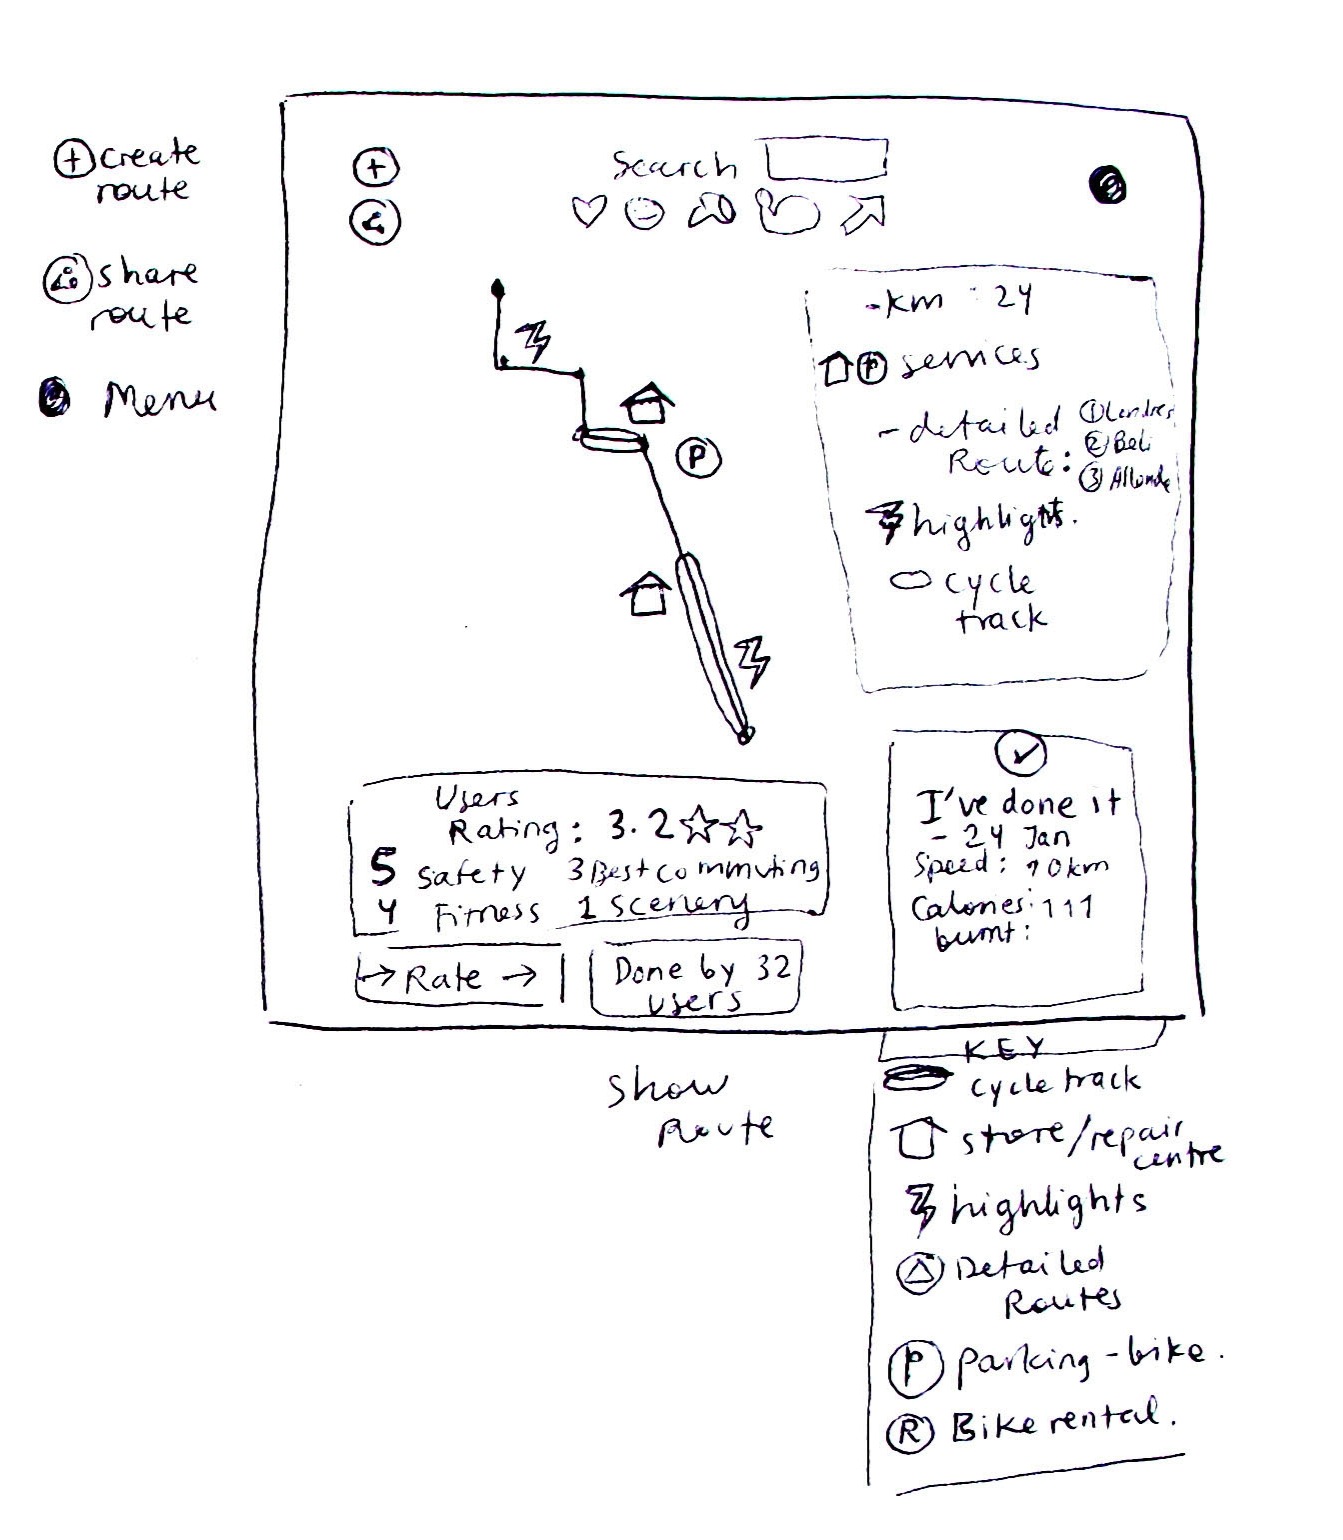 + create
route
share
route
Menu
+
Search
- km : 24
P services
- detailed
Route:
① Londres
② Beli
③ Allende
highlights.
cycle
track
P
Users
Rating: 3.2
5 Safety 3 Best commuting
4 Fitness 1 Scenery
→ Rate →
Done by 32
users
I've done it
- 24 Jan
Speed: 10 km
Calories: 111
burnt:
Show
Route
KEY
cycle track
store/repair
centre
highlights
Detailed
Routes
P parking - bike.
R Bike rental.